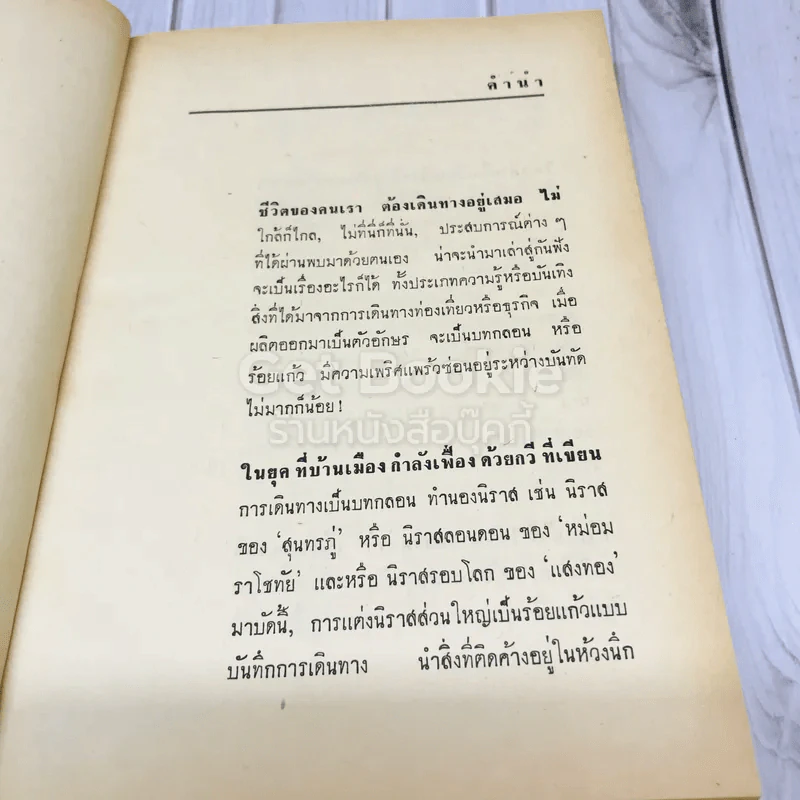 คำนำ
ชีวิตของคนเรา ต้องเดินทางอยู่เสมอ ไม่
ใกล้ก็ไกล, ไม่ที่นี่ก็ที่นั่น, ประสบการณ์ต่าง ๆ
ที่ได้ผ่านพบมาด้วยตนเอง น่าจะนำมาเล่าสู่กันฟัง
จะเป็นเรื่องอะไรก็ได้ ทั้งประเภทความรู้หรือบันเทิง
สิ่งที่ได้มาจากการเดินทางท่องเที่ยวหรือธุรกิจ เมื่อ
ผลิตออกมาเป็นตัวอักษร จะเป็นบทกลอน หรือ
ร้อยแก้ว มีความเพริศแพร้วซ่อนอยู่ระหว่างบันทัด
ไม่มากก็น้อย!
Get Bookie
ร้านหนังสือบุ๊คกี้
ในยุค ที่บ้านเมือง กำลังเฟื่อง ด้วยกวี ที่เขียน
การเดินทางเป็นบทกลอน ทำนองนิราส เช่น นิราส
ของ 'สุนทรภู่' หรือ นิราสลอนดอน ของ 'หม่อม
ราโชทัย' และหรือ นิราสรอบโลก ของ 'แสงทอง'
มาบัดนี้, การแต่งนิราสส่วนใหญ่เป็นร้อยแก้วแบบ
บันทึกการเดินทาง นำสิ่งที่ติดค้างอยู่ในห้วงนึก